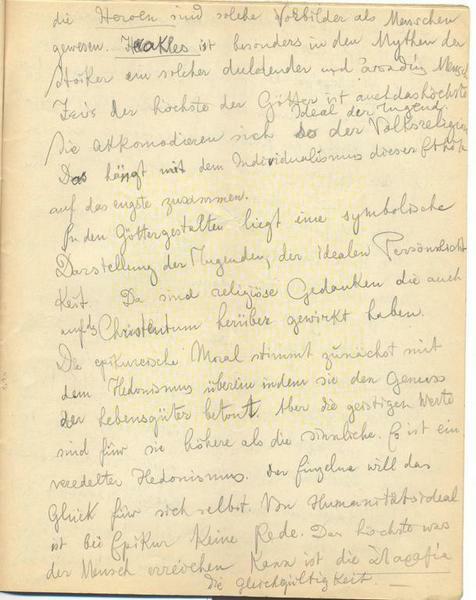 die Heroen sind solche Vorbilder als Menschen
gewesen. Herakles ist besonders in den Mythen der
Stoiker ein solcher duldender und Mensch
Zeus der höchste der Götter ist auch das höchste
Ideal der Tugend.
Sie akkomodieren sich so der Volksreligion
Das hängt mit dem Individualismus dieser Ethik
auf das engste zusammen.
In den Göttergestalten liegt eine symbolische
Darstellung der Tugenden, der idealen Persönlich
keit. Da sind religiöse Gedanken die auch
auf's Christentum herüber gewirkt haben.
Die epikureische Moral stimmt zunächst mit
dem Hedonismus überein indem sie den Genuss
der Lebensgüter betont. Aber die geistigen Werte
sind für sie höhere als die sinnliche. Es ist ein
veredelter Hedonismus. Der Einzelne will das
Glück für sich selbst. Von Humanitätsideal
ist bei Epikur keine Rede. Das höchste was
der Mensch erreichen kann ist die
die Gleichgültigkeit